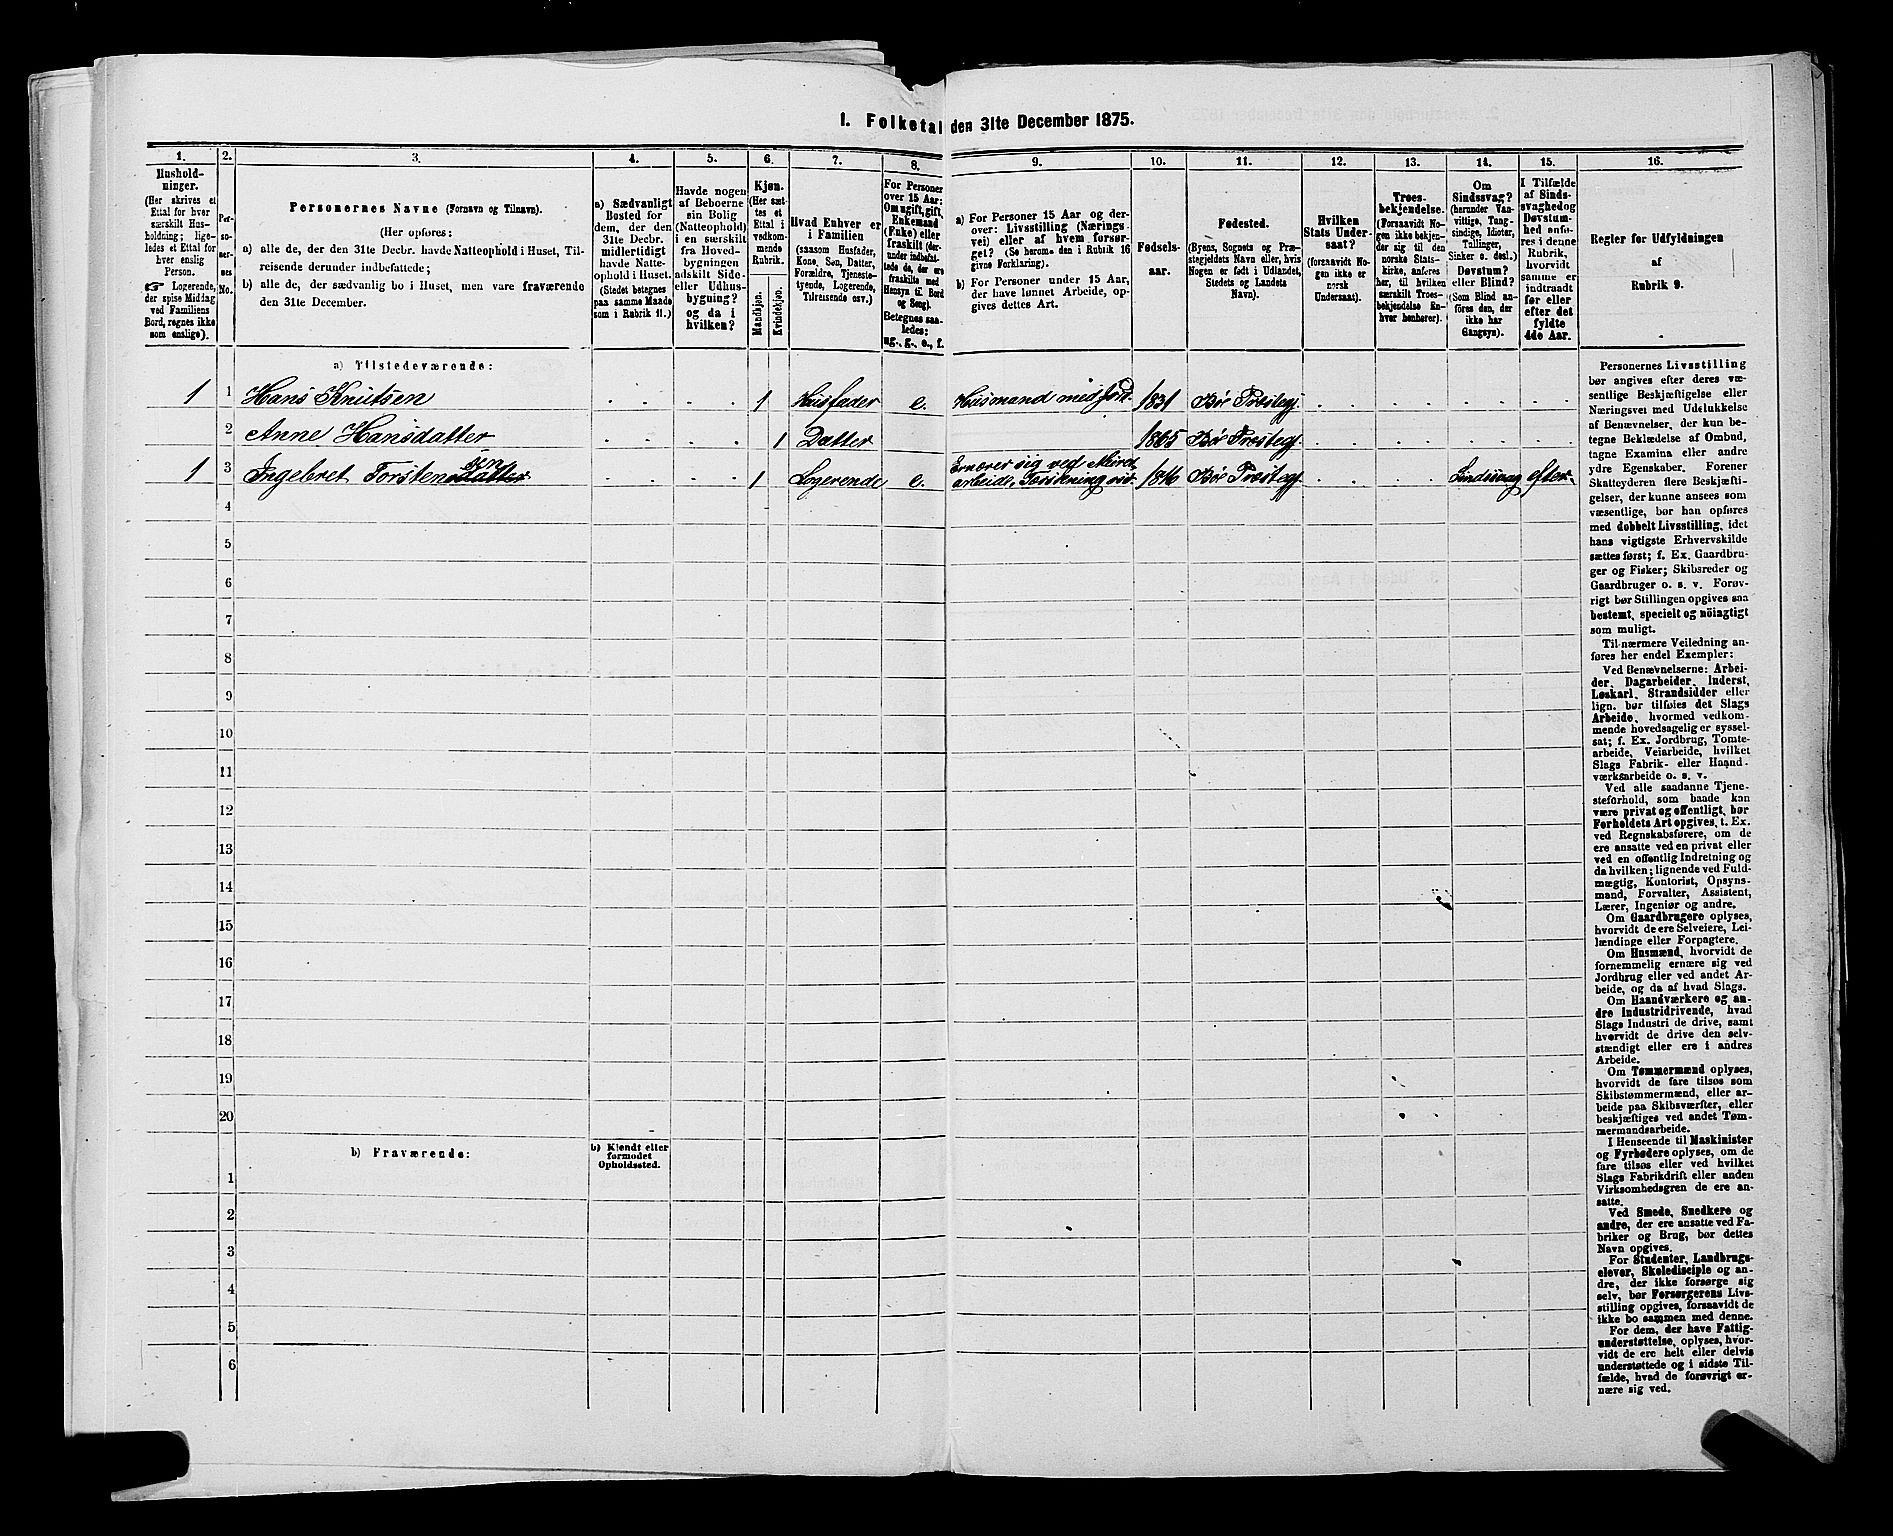 I. Folketal den 31te December 1875.
1. 2. 3. 4. 5. 6. 7. 8. 9. 10. 11. 12. 13. 14. 15. 16.
Hushold-
ninger.
(Her skrives et
Ettal for hver
særskilt Hus-
holdning; lige-
ledes et Ettal for
hver enslig
Person.
☞ Logerende,
der spise Middag
ved Familiens
Bord, regnes ikke
som enslige).
Per-
so-
ner-
nes
No.
Personernes Navne (Fornavn og Tilnavn).
(Her opføres:
a) alle de, der den 31te Decbr. havde Natteophold i Huset, Til-
reisende derunder indbefattede;
b) alle de, der sædvanlig bo i Huset, men vare fraværende
den 31te December.
a) Sædvanligt
Bosted for
dem, der den
31te Decbr.
midlertidigt
havde Natte-
ophold i Huset.
(Stedet betegnes
paa samme Maade
som i Rubrik 11.)
Havde nogen
af Beboerne
sin Bolig
(Natteophold)
i en særskilt
fra Hoved-
bygningen
adskilt Side-
eller Udhus-
bygning?
og da i
hvilken?
Kjøn.
(Her sæt-
tes et
Ettal i
vedkom-
mende
Rubrik.
Mandkjøn.
Kvindekjøn.
Hvad Enhver er
i Familien
(saasom Husfader,
Kone, Søn, Datter,
Forældre, Tjeneste-
tyende, Logerende,
Tilreisende osv.)
For Personer
over 15 Aar:
Om ugift, gift,
Enkemand
(Enke) eller
fraskilt (der-
under indbefat-
tede de, der ere
fraskilte med
Hensyn til Bord
og Seng).
Betegnes saa-
ledes:
ug., g., e., f.
a) For Personer 15 Aar og der-
over: Livsstilling (Nærings-
vei) eller af hvem forsør-
get? (Se herom den i Rubrik 16
givne Forklaring).
b) For Personer under 15 Aar,
der have lønnet Arbeide, op-
gives dettes Art.
Fødsels-
aar.
Fødested.
(Byens, Sognets og Præ-
stegjeldets Navn eller, hvis
Nogen er født i Udlandet,
Stedets og Landets
Navn).
Hvilken
Stats Under-
saat?
(forsaavidt No-
gen ikke er
norsk
Undersaat).
Troes-
bekjendelse.
(Forsaavidt No-
gen ikke bekjen-
der sig til den
norske Stats-
kirke, anføres
her, til hvilken
særskilt Troes-
bekjendelse En-
hver henhører).
Om
Sindssvag?
(herunder Van-
vittige, Tung-
sindige, Idioter,
Tullinger,
Sinker o. desl.)
Døvstum?
eller Blind?
(Som Blind an-
føres den, der
ikke har
Gangsyn).
I Tilfælde
af Sinds-
svaghed og
Døvstum-
hed anfø-
res i denne
Rubrik,
hvorvidt
samme er
indtraadt
før eller
efter det
fyldte
4de Aar.
Regler for Udfyldningen
af
Rubrik 9.
a) Tilstedeværende:
1 1 Hans Knutsen 1 Husfader e. Husmand med Jord 1831 Bø Præstegj.
2 Anne Hansdatter 1 Datter 1865 Bø Præstegj.
1 3 Ingebret Torstensdatter sen 1 Logerende e. Ernærer sig ved
arbeide, Bø Præstegj. Sindssvag efter
4
5
6
7
8
9
10
11
12
13
14
15
16
17
18
19
20
b) Fraværende:
b) Kjendt eller
formodet
Opholdssted.
1
2
3
4
5
6
Personernes Livsstilling
bør angives efter deres væ-
sentlige Beskjæftigelse eller
Næringsvei med Udelukkelse
af Benævnelser, der kun be-
tegne Beklædelse af Ombud,
tagne Examina eller andre
ydre Egenskaber. Forener
Skatteyderen flere Beskjæfti-
gelser, der kunne ansees som
væsentlige, bør han opføres
med dobbelt Livsstilling, idet
hans vigtigste Erhvervskilde
sættes først; f. Ex. Gaardbru-
ger og Fisker; Skibsreder og
Gaardbruger o. s. v. Forøv-
rigt bør Stillingen opgives saa
bestemt, specielt og nöiagtigt
som muligt.
Til nærmere Veiledning an-
føres her endel Exempler:
Ved Benævnelserne: Arbei-
der, Dagarbeider, Inderst,
Løskarl, Strandsidder eller
lign. bør tilføies det Slags
Arbeide, hvormed vedkom-
mende hovedsagelig er syssel-
sat; f. Ex. Jordbrug, Tomte-
arbeide, Veiarbeide, hvilket
Slags Fabrik- eller Haand-
værksarbeide o. s. v.
Ved alle saadanne Tjene-
steforhold, som baade kan
være privat og offentligt, bør
Forholdets Art opgives, t. Ex.
ved Regnskabsførere, om de
ere ansatte ved en privat eller
ved en offentlig Indretning og
da hvilken; lignende ved Fuld-
mægtig, Kontorist, Opsyns-
mand, Forvalter, Assistent,
Lærer, Ingeniør og andre.
Om Gaardbrugere oplyses,
hvorvidt de ere Selveiere, Lei-
lændinge eller Forpagtere.
Om Husmænd, hvorvidt de
fornemmelig ernære sig ved
Jordbrug eller ved andet Ar-
beide, og da af hvad Slags.
Om Haandværkere og an-
dre Industridrivende, hvad
Slags Industri de drive, samt
hvorvidt de drive den selv-
stændigt eller ere i andres
Arbeide.
Om Tømmermænd oplyses,
hvorvidt de fare tilsøs som
Skibstømmermænd, eller ar-
beide paa Skibsværfter, eller
beskjæftiges ved andet Tøm-
mermandsarbeide.
I Henseende til Maskinister
og Fyrbødere oplyses, om de
fare tilsøs eller ved hvilket
Slags Fabrikdrift eller anden
Virksomhedsgren de ere an-
satte.
Ved Smede, Snedkere og
andre, der ere ansatte ved Fa-
briker og Brug, bør dettes
Navn opgives.
For Studenter, Landbrugs-
elever, Skoledisciple og an-
dre, der ikke forsørge sig
selv, bør Forsørgerens Livs-
stilling opgives, forsaavidt de
ikke bo sammen med denne.
For dem, der have Fattig-
understøttelse, oplyses, hvor-
vidt de ere helt eller delvis
understøttede og i sidste Til-
fælde, hvad de forøvrigt er-
nære sig ved.